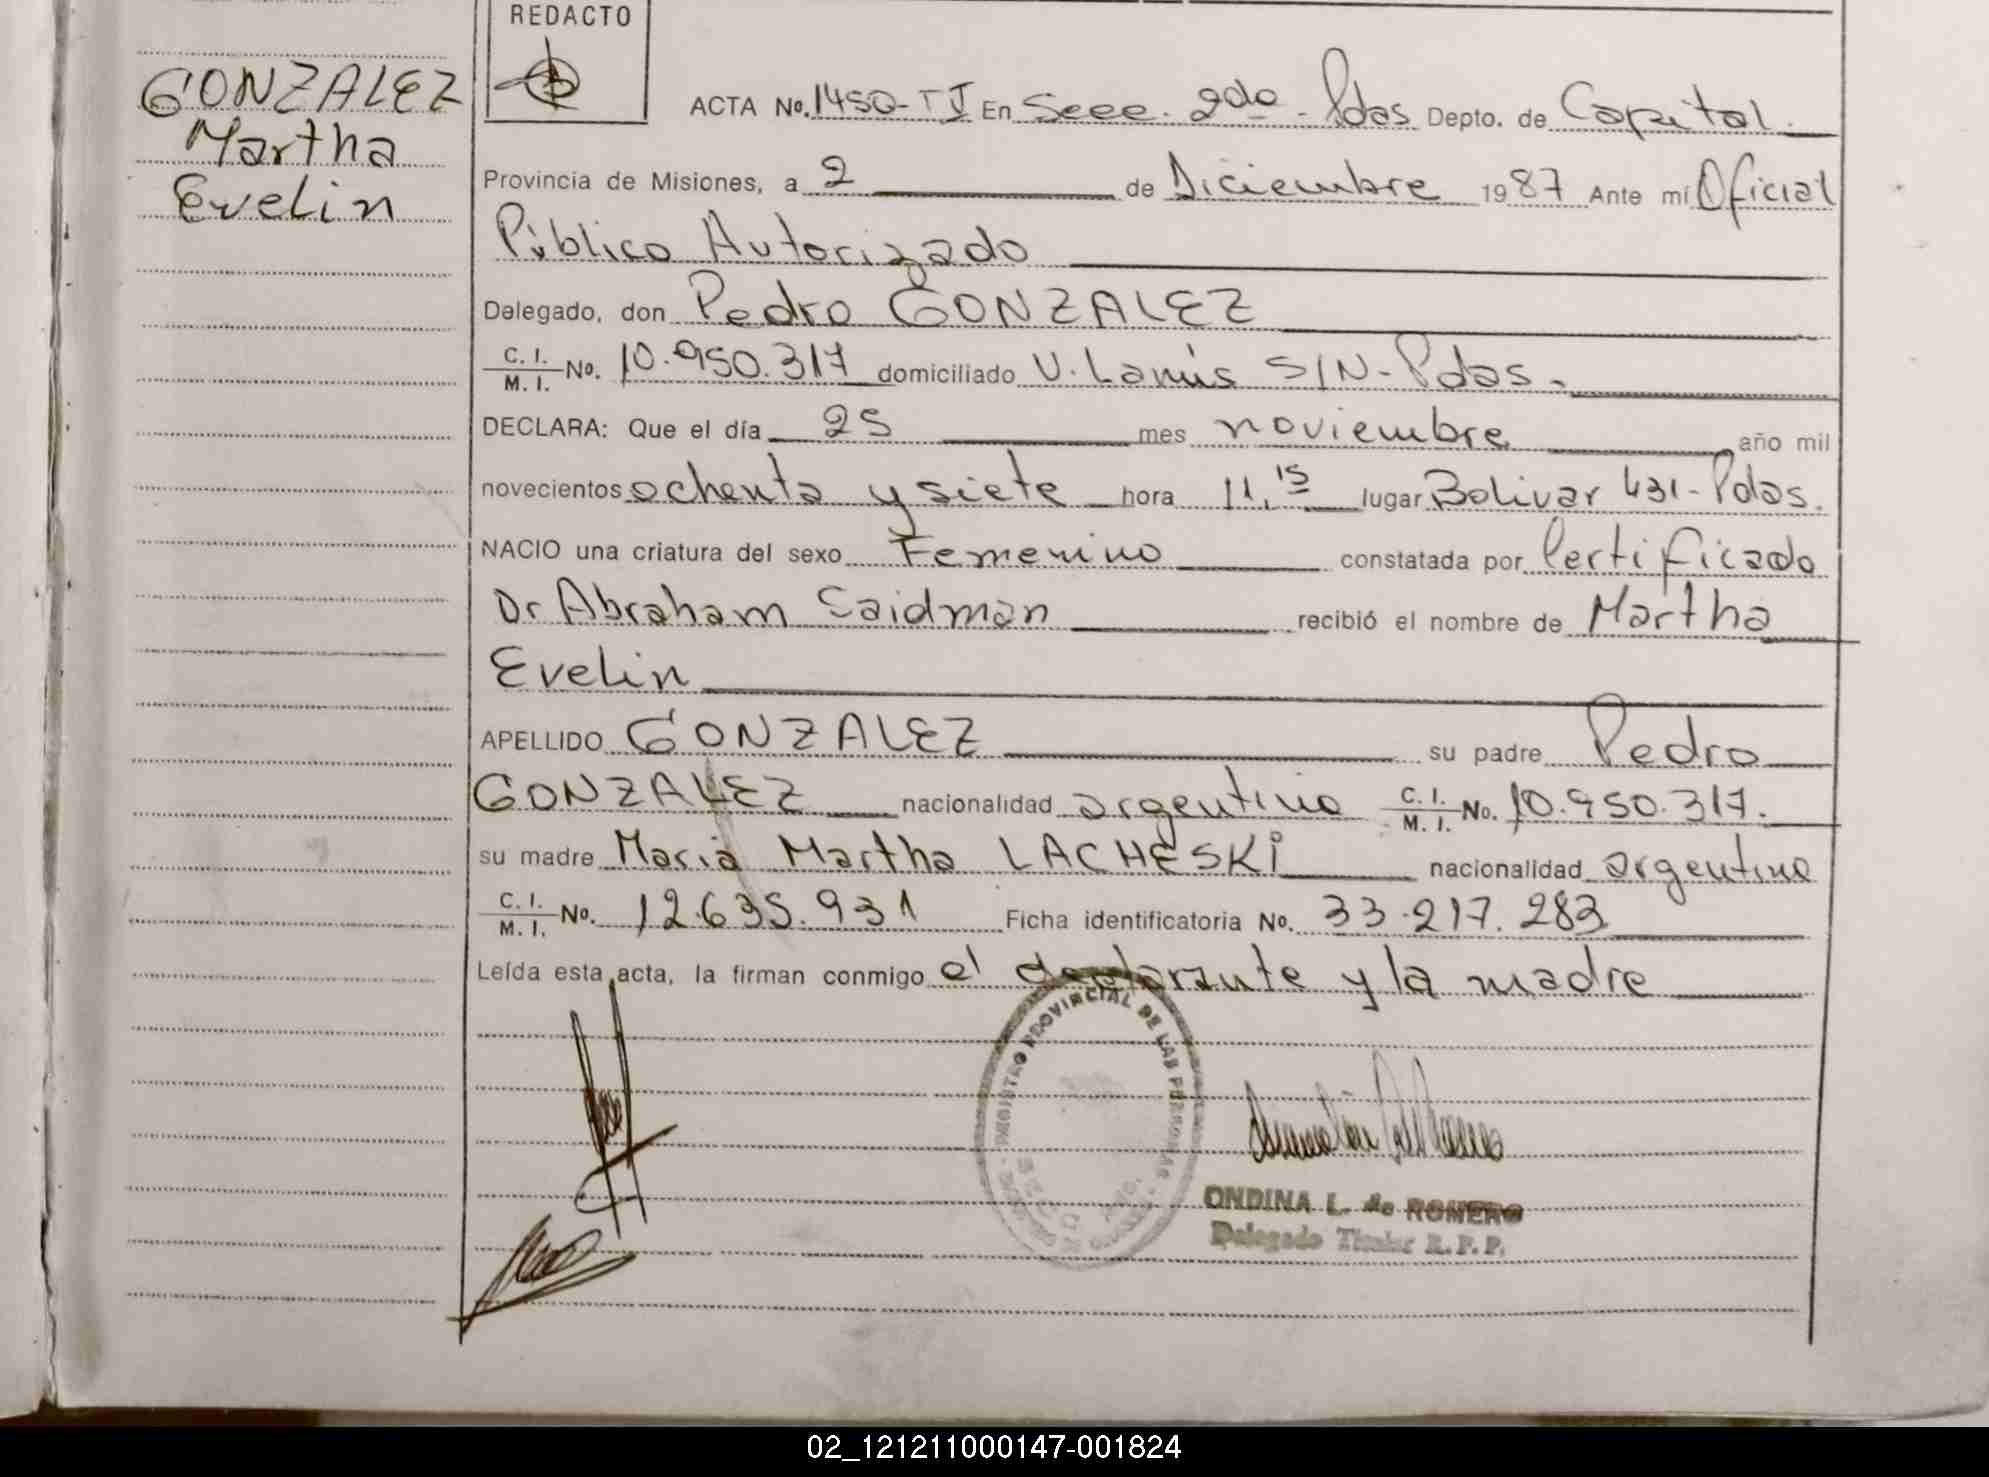 REDACTO
GONZALEZ
Martha
Evelin
ACTA No. 1450-TI En Secc. 2da - Pdas Depto. de Capital.
Provincia de Misiones, a 2 de Diciembre 1987 Ante mí Oficial
Público Autorizado
Delegado, don Pedro GONZALEZ
C. I. / M. I. No. 10.950.317 domiciliado V. Lanús S/N - Pdas.
DECLARA: Que el día 25 mes noviembre año mil
novecientos ochenta y siete hora 11,15 lugar Bolivar 431 - Pdas.
NACIO una criatura del sexo Femenino constatada por Certificado
Dr Abraham Saidman recibió el nombre de Martha
Evelin
APELLIDO GONZALEZ su padre Pedro
GONZALEZ nacionalidad argentino C. I. / M. I. No. 10.950.317.
su madre María Martha LACHESKI nacionalidad argentina
C. I. / M. I. No. 12.635.931 Ficha identificatoria No. 33.217.283
Leída esta acta, la firman conmigo el declarante y la madre
REGISTRO PROVINCIAL DE LAS PERSONAS
ONDINA L. de ROMERO
Delegado Titular R.P.P.
02_121211000147-001824